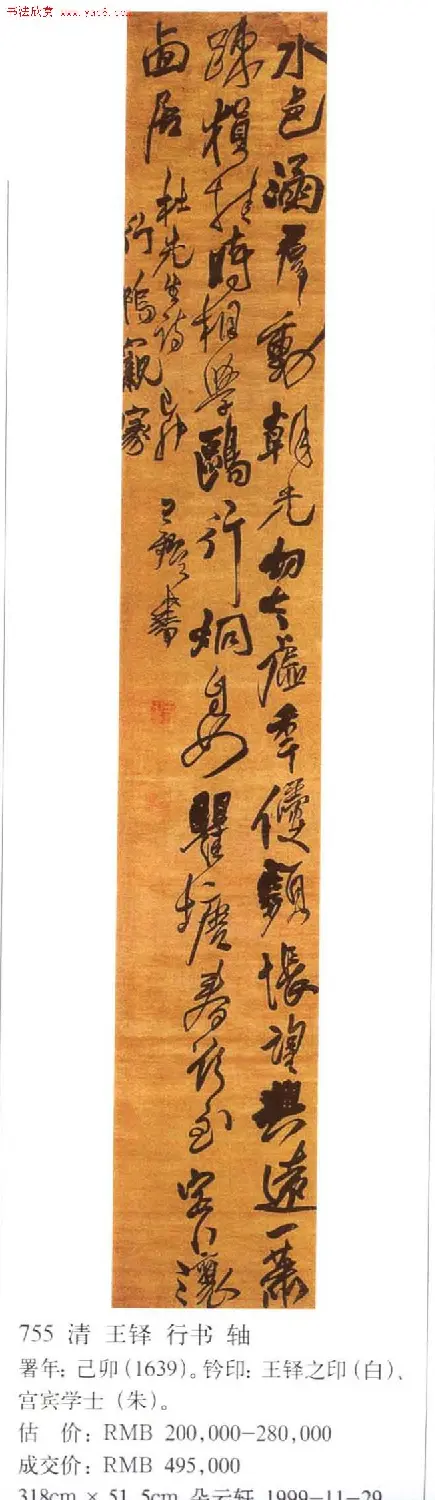 书法欣赏 www.yac8.com
水色涵羣動朝光切太虛年侵頻悵望興遠一蕭
踈猿挂時相學鷗行炯自如瞿塘春欲至定卜瀼
西居 杜先生詩 己卯
行隖觀察
王鐸書
755 清 王铎 行书 轴
署年: 己卯(1639)。钤印: 王铎之印(白)、
宫宾学士(朱)。
估 价: RMB 200,000-280,000
成交价: RMB 495,000
318cm × 51.5cm 朵云轩 1999-11-29